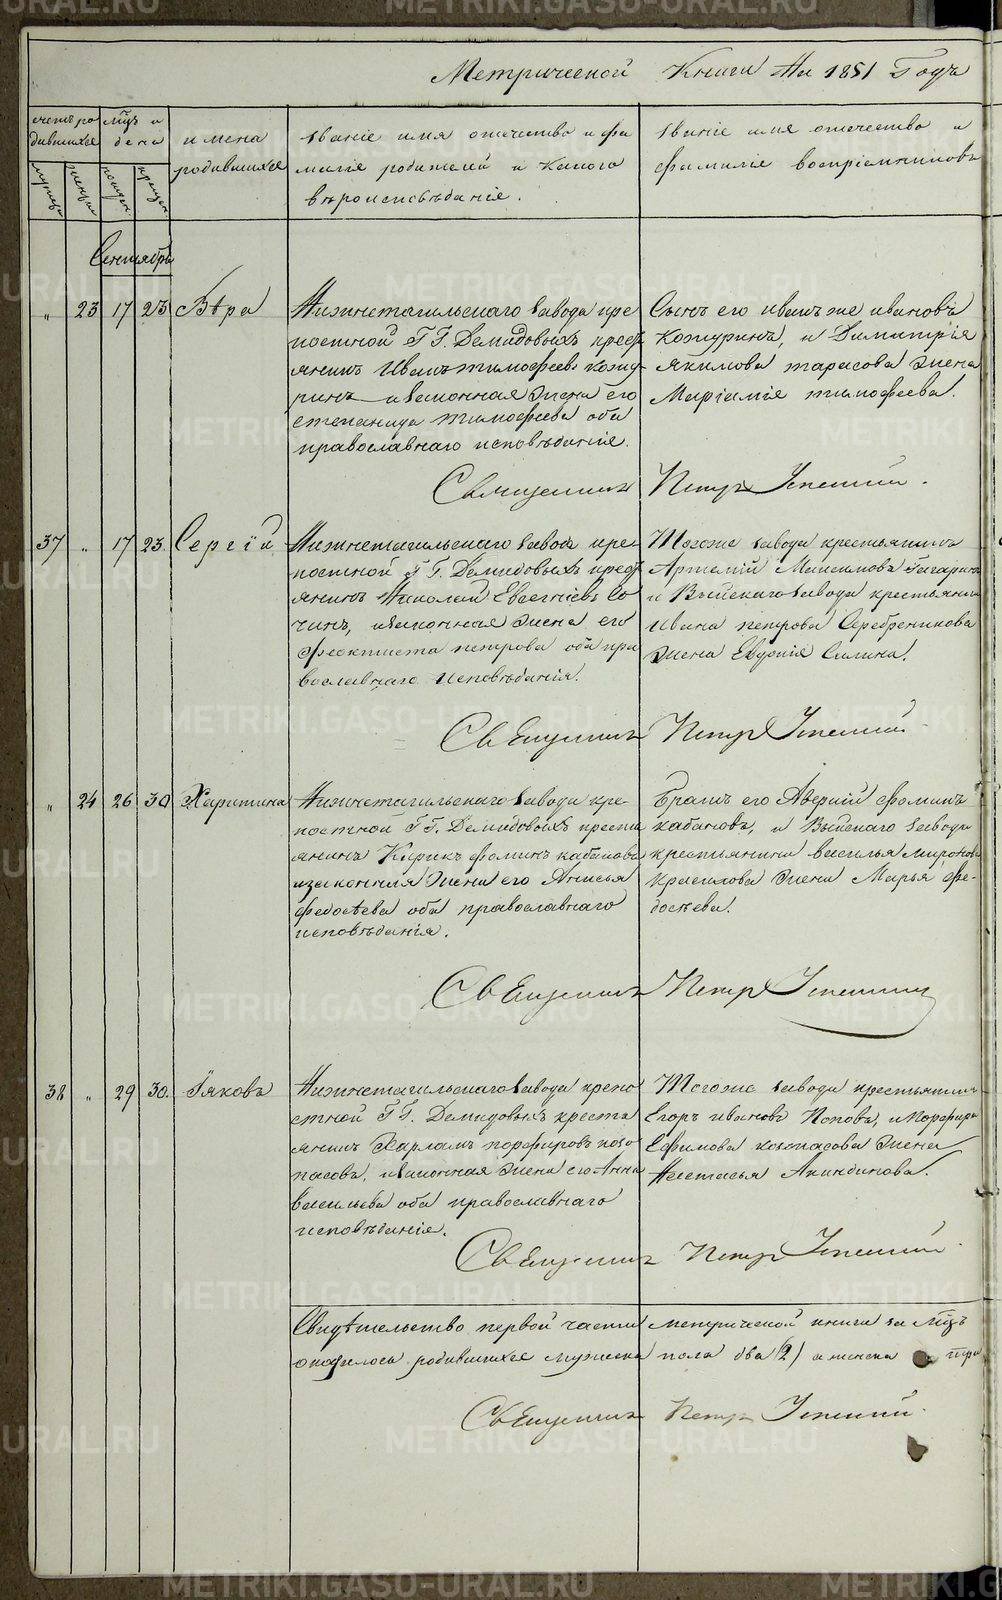 Метрической Книги На 1851 Годъ
счетъ родившихся
мужеска
женска
мцъ и день
рожден
крещен
имена родившихся
званіе имя отчество и фамилія родителей и какого вѣроисповѣданія.
званіе имя отчество и фамиліе воспріемниковъ
Сентябрь
„ 23 17 23 Вѣра
Нижнетагильскаго завода кре-
постной Г.Г. Демидовыхъ крест
янинъ Иванъ тимофеевъ кожу
ринъ и законная жена его
степанида тимофеева оба
православнаго исповѣданія.
Сынъ его иванъ же ивановъ
кожуринъ, и Димитрія
якимова тарасова жена
Маріамія тимофеева.
Священникъ Петръ Успенский.
37 „ 17 23 Сергій
Нижнетагильскаго завода кре-
постной Г.Г. Демидовыхъ крест
янинъ Николай Евсегніевъ Со
чинъ, изаконная жена его
феоктиста петрова оба пра
вославнаго исповѣданія.
Тогоже завода крестьянинъ
Артемій Максимовъ Гагаринъ
и Выйскаго завода крестьянина
Ивана петрова Серебреникова
жена Евдокія Силина.
Священникъ Петръ Успенский
„ 24 26 30 Харитина
Нижнетагильскаго завода кре-
постной Г.Г. Демидовыхъ крестья
янинъ Кирикъ фоминъ кабаковъ
изаконная жена его Анисья
федосѣева оба православнаго
исповѣданія.
Братъ его Аверкій фоминъ
кабаковъ, и Выйскаго завода
крестьянина василья миронова
Красилова жена Марья фе-
досѣева.
Священникъ Петръ Успенский
38 „ 29 30 Іяковъ
Нижнетагильскаго завода крепо
стной Г.Г. Демидовыхъ крестья
янинъ Харламъ порфировъ коз
пасовъ, изаконная жена его Анна
васильева оба православнаго
исповѣданія.
Тогоже завода крестьянинъ
Егоръ ивановъ Поповъ, и порфира
Ефимова жена
Настасья Акиндинова.
Священникъ Петръ Успенский.
Свидѣтельство первой части метрической книги за мцъ
оказалось родившихся мужеска пола два (2) а женска три
Священникъ Петръ Успенский.
METRIKI.GASO-URAL.RU